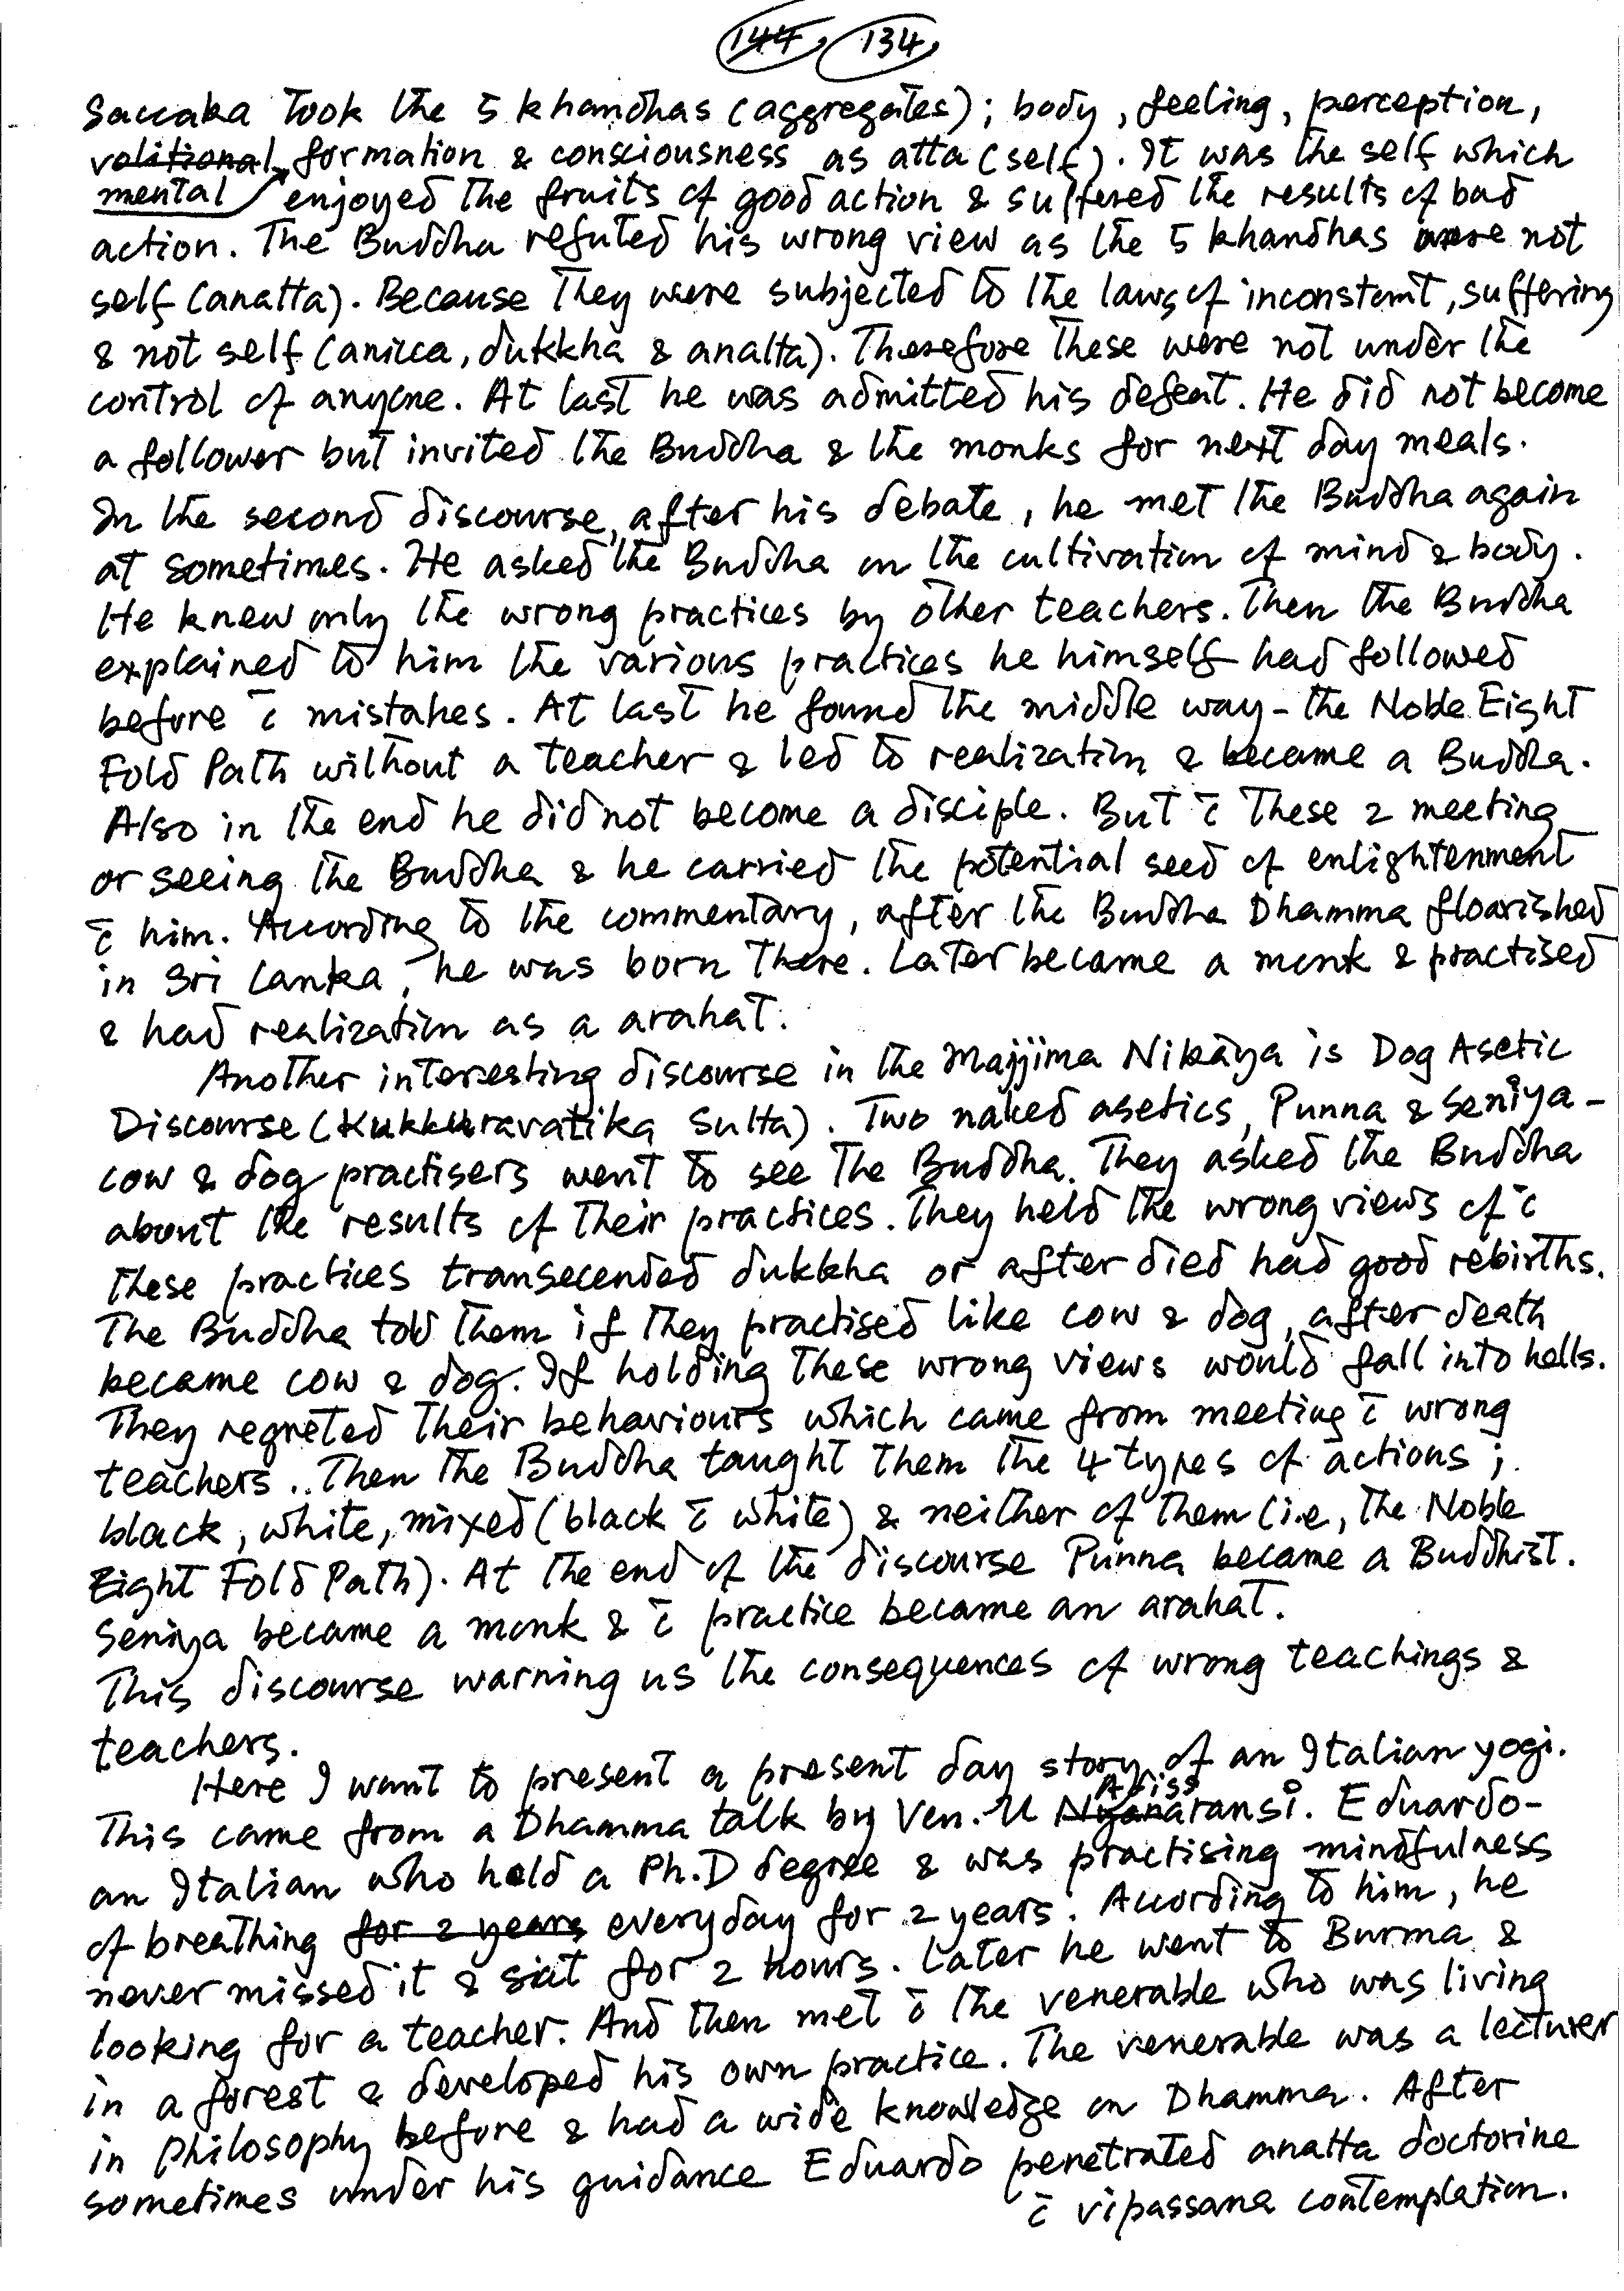 144, 134,
Saccaka took the 5 khandhas (aggregates); body, feeling, perception,
volitional formation & consciousness as atta (self). It was the self which
mental enjoyed the fruits of good action & suffered the results of bad
action. The Buddha refuted his wrong view as the 5 khandhas were not
self (anatta). Because they were subjected to the laws of inconstant, suffering
& not self (anicca, dukkha & anatta). Therefore these were not under the
control of anyone. At last he was admitted his defeat. He did not become
a follower but invited the Buddha & the monks for next day meals.
In the second discourse, after his debate, he met the Buddha again
at sometimes. He asked the Buddha on the cultivation of mind & body.
He knew only the wrong practices by other teachers. Then the Buddha
explained to him the various practices he himself had followed
before c̄ mistakes. At last he found the middle way - the Noble Eight
Fold Path without a teacher & led to realization & became a Buddha.
Also in the end he did not become a disciple. But c̄ these 2 meeting
or seeing the Buddha & he carried the potential seed of enlightenment
c̄ him. According to the commentary, after the Buddha Dhamma floarished
in Sri Lanka, he was born there. Later became a monk & practised
& had realization as a arahat.
Another interesting discourse in the Majjima Nikāya is Dog Asetic
Discourse (Kukkuravatika Sutta). Two naked asetics, Punna & Seniya -
cow & dog practisers went to see the Buddha. They asked the Buddha
about the results of their practices. They held the wrong views of c̄
these practices transecended dukkha or after died had good rebirths.
The Buddha told them if they practised like cow & dog, after death
became cow & dog. If holding these wrong views would fall into hells.
They regreted their behaviours which came from meeting c̄ wrong
teachers.. Then the Buddha taught them the 4 types of actions;
black, white, mixed (black c̄ white) & neither of them (i.e, the Noble
Eight Fold Path). At the end of the discourse Punna became a Buddhist.
Seniya became a monk & c̄ practice became an arahat.
This discourse warning us the consequences of wrong teachings &
teachers.
Here I want to present a present day story of an Italian yogi.
This came from a Dhamma talk by Ven. U Nyanaransi. Eduardo-
an Italian who held a Ph.D degree & was practising mindfulness
of breathing for 2 years everyday for 2 years. According to him, he
never missed it & sat for 2 hours. Later he went to Burma &
looking for a teacher. And then met c̄ the venerable who was living
in a forest & developed his own practice. The venerable was a lecturer
in philosophy before & had a wide knowledge on Dhamma. After
sometimes under his guidance Eduardo penetrated anatta doctorine
c̄ vipassana contemplation.